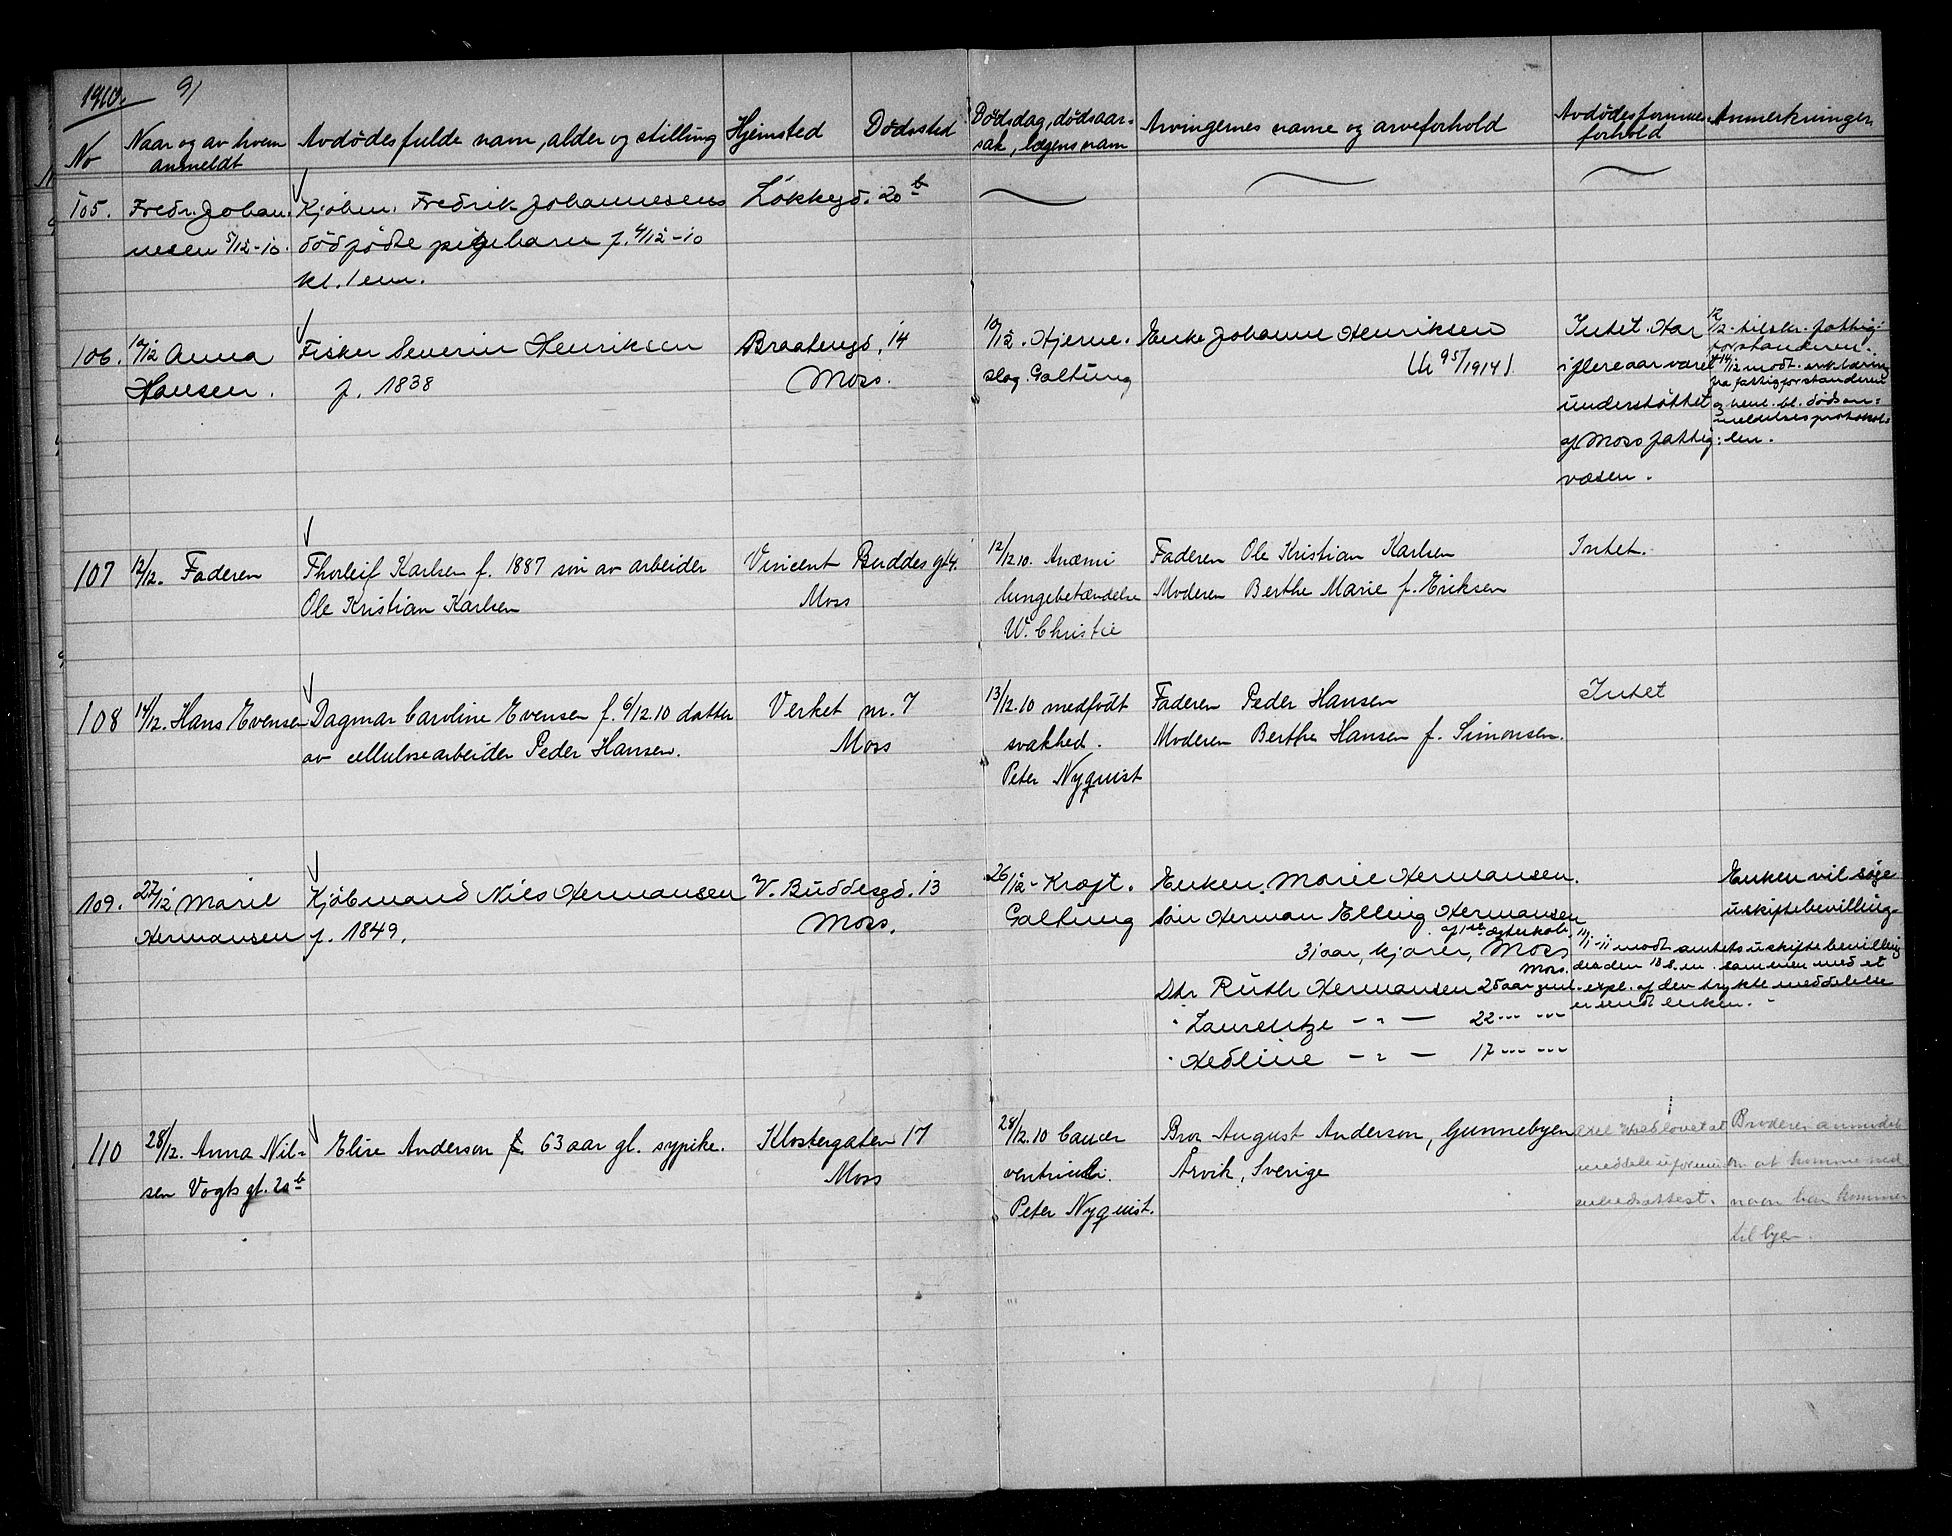 1910. 91
No
Naar og av hvem anmeldt
Avdödes fulde navn, alder og stilling
Hjemsted
Dødssted
Dödsdag, dödsaar=
sak, lægens navn
Arvingernes navne og arveforhold
Avdödes formues
forhold
Anmerkninger
105. Fredr. Johan
nesen 5/12-10.
Kjöbm. Fredrik Johannesens
dödfödte pigebarn f. 4/12-10
kl. 1 em.
Løkkegd. 20b
106. 10/12 Anna
Hansen.
Fisker Severin Henriksen
f. 1838
Braatengd. 14
Moss.
10/12. Hjerne.
slag. Galtung
Enke Johanne Henriksen
95/1914
Intet. Har
i flere aar været
understøttet
af Moss fattig
væsen.
12/12 tilskr. fattig-
forstanderen.
14/12 modt. erklæring
fra fattigforstanderen
og henl. bl. dödsan=
meldelsesprotokol=
len.
107 12/12. Faderen
Thorleif Karlsen f. 1887 sön av arbeider
Ole Kristian Karlsen
Vincent Buddes gt 4.
Moss
12/12 10. Anæmi
lungebetændelse
W. Christie
Faderen Ole Kristian Karlsen
Moderen Berthe Marie f. Eriksen
Intet.
108 14/12. Hans Evensen
Dagmar Caroline Evensen f. 6/12 10 datter
av cellulosearbeider Peder Hansen.
Verket nr. 7
Moss
13/12.10 medfödt
svakhed.
Peter Nyquist
Faderen Peder Hansen
Moderen Berthe Hansen f. Simonsen.
Intet
109. 27/12 Marie
Hermansen
Kjöbmand Nils Hermansen
f. 1849.
V. Buddesgd. 13
Moss.
26/12 - Kræft.
Galtung
Enken, Marie Hermansen.
Sön Herman Elling Hermansen
af 1ste egteskab.
31 aar, kjører, Moss
Moss.
Dtr Ruth Hermansen 25 aar gml.
" Laurentze - " - 22 --- ---
" Hedline - " - 17 --- ---
Enken vil söge
uskiftebevilling.
11/1-11 modt. amtets uskiftebevilling
den 10 s.m. sammen med et
expl. af den trykte meddelelse
er sendt enken.
110 28/12. Anna Nil=
sen Vogts gt. 20b
Elise Anderson f. 63 aar gl. sypike.
Klostergaten 17
Moss
28/12.10 Cancer
ventriculi.
Peter Nyquist.
Bror August Anderson, Gunnebyen
Årvik, Sverige
lovet at
meddele
attest.
Broderen anmodet
om at komme ned
naar han kommer
til byen.